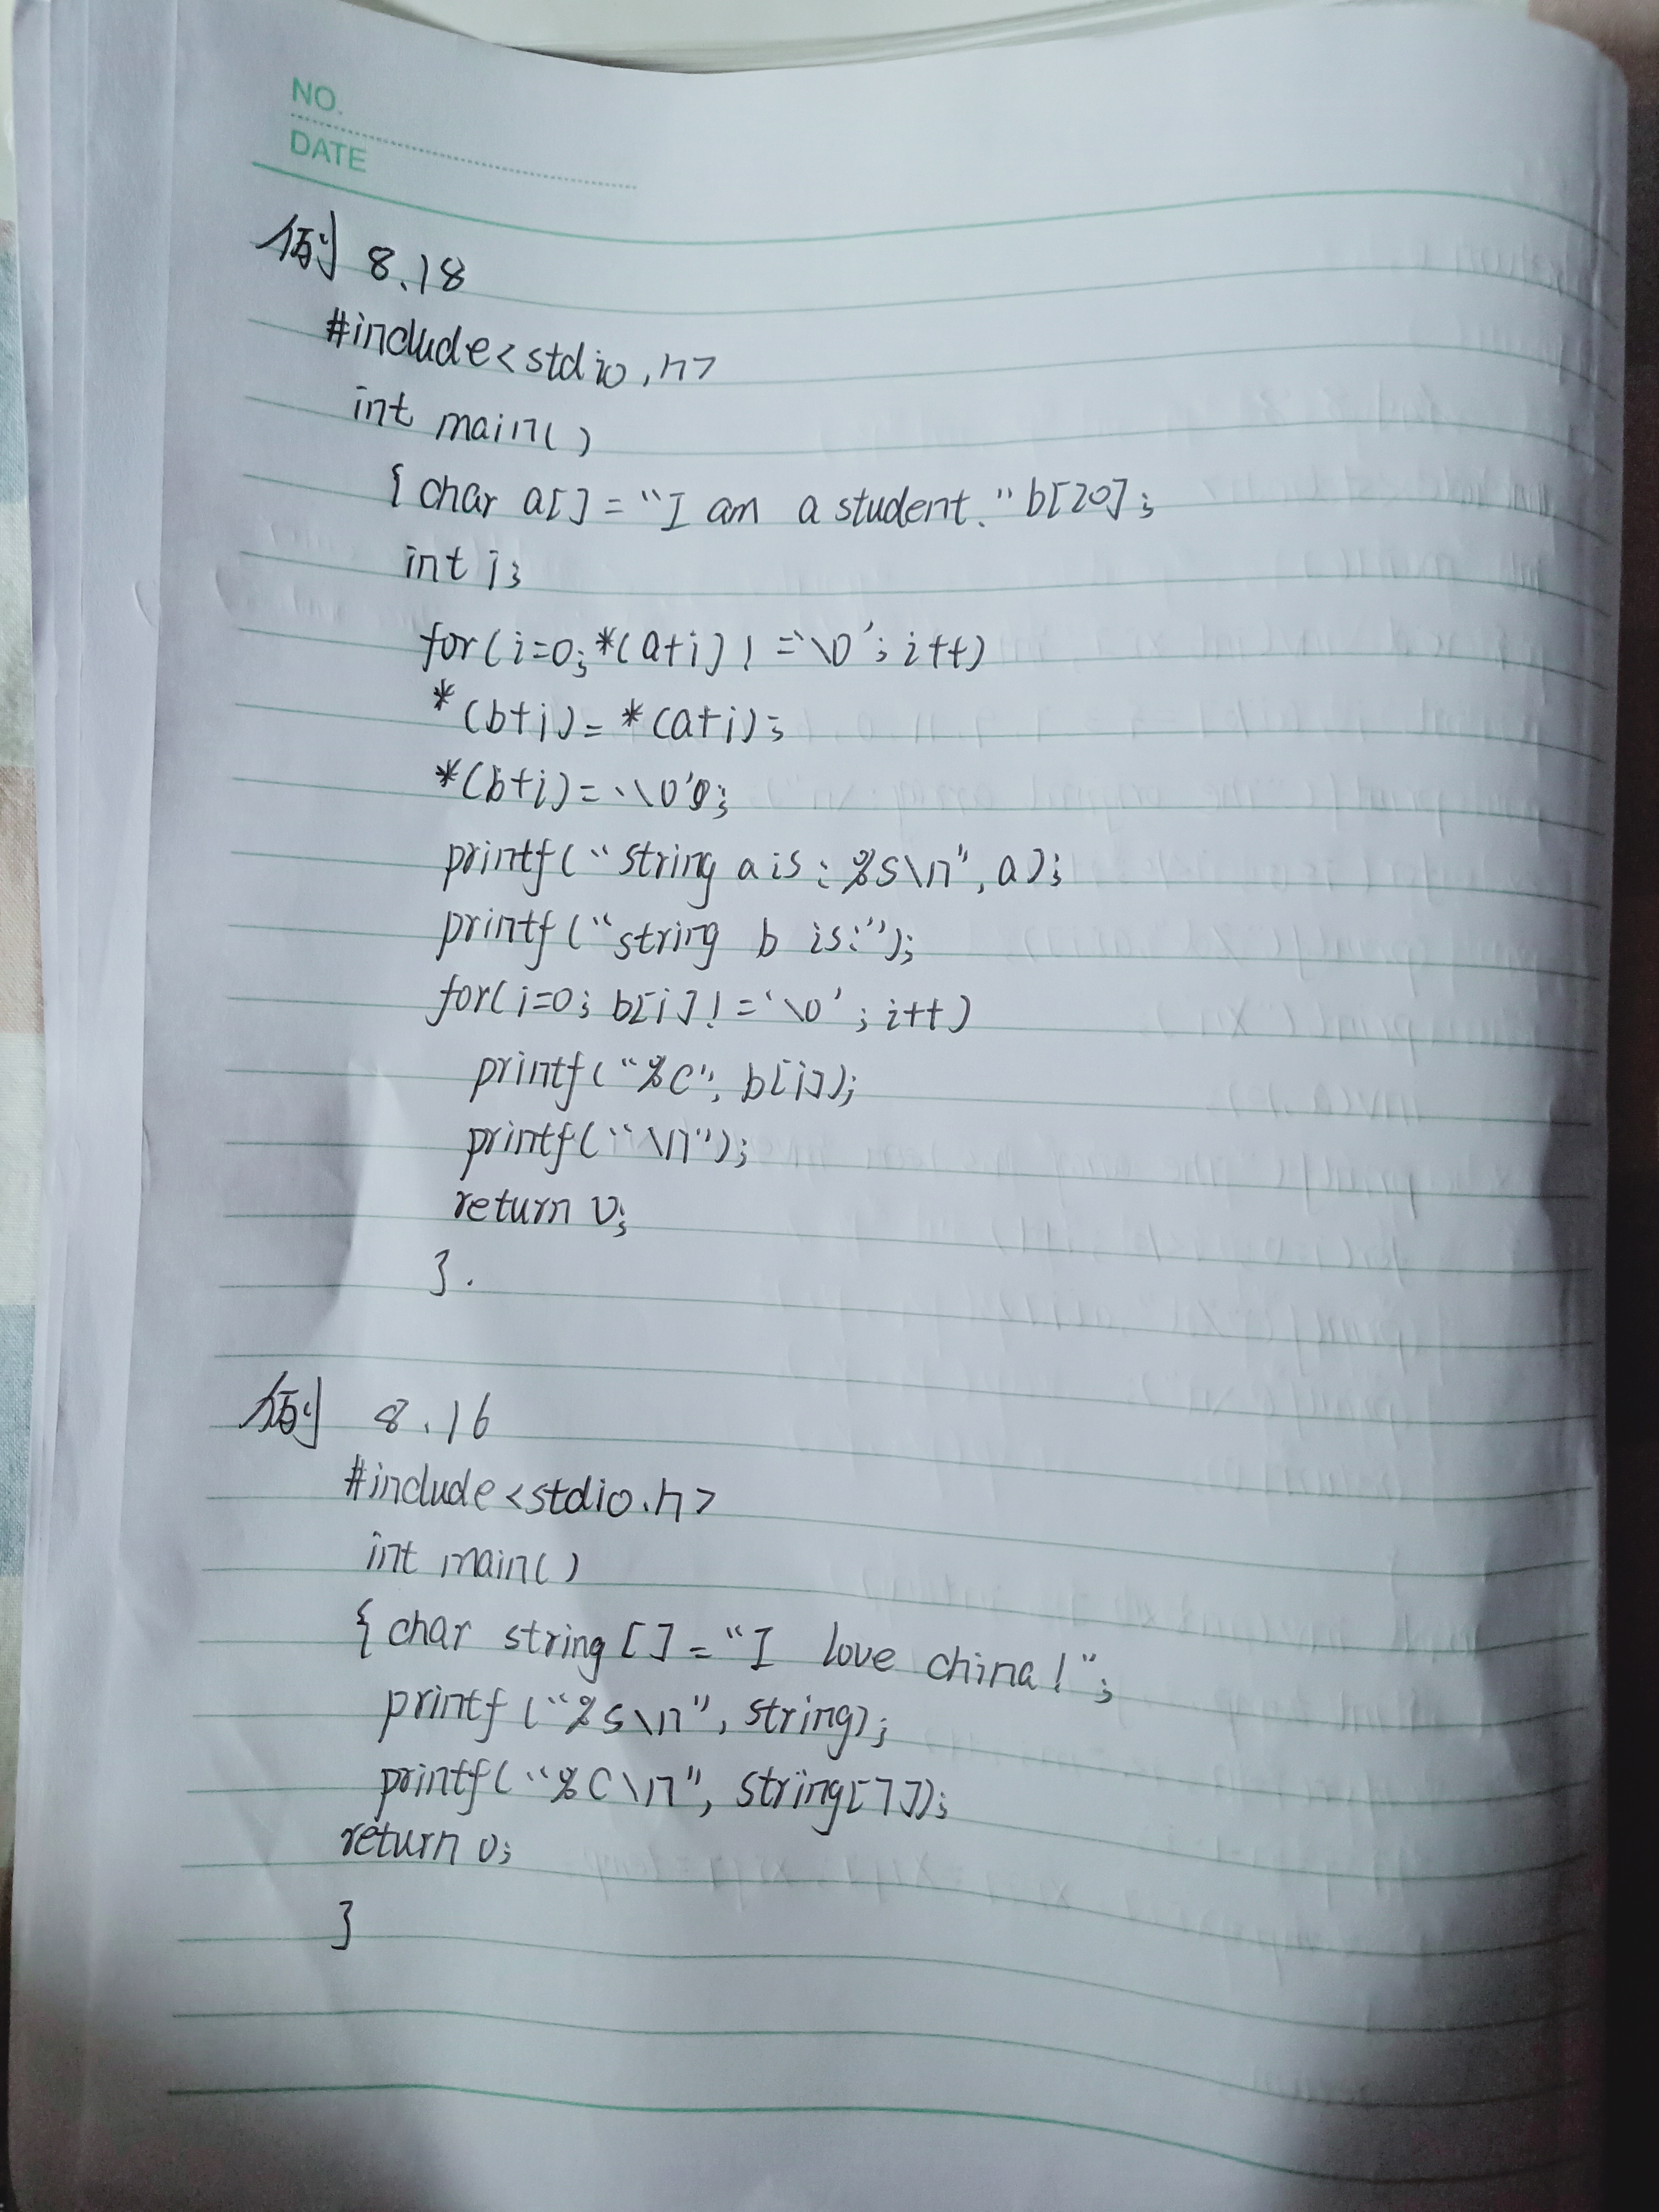 NO.
DATE
例 8.18
#include<stdio.h>
int main()
{char a[]="I am a student."b[20];
int i;
for(i=0;*(a+i)!='\0';i++)
*(b+i)=*(a+i);
*(b+i)='\0';
printf("string a is:%s\n",a);
printf("string b is:");
for(i=0;b[i]!='\0';i++)
printf("%c",b[i]);
printf("\n");
return 0;
}.
例 8.16
#include<stdio.h>
int main()
{char string[]="I love china!";
printf("%s\n",string);
printf("%c\n",string[7]);
return 0;
}